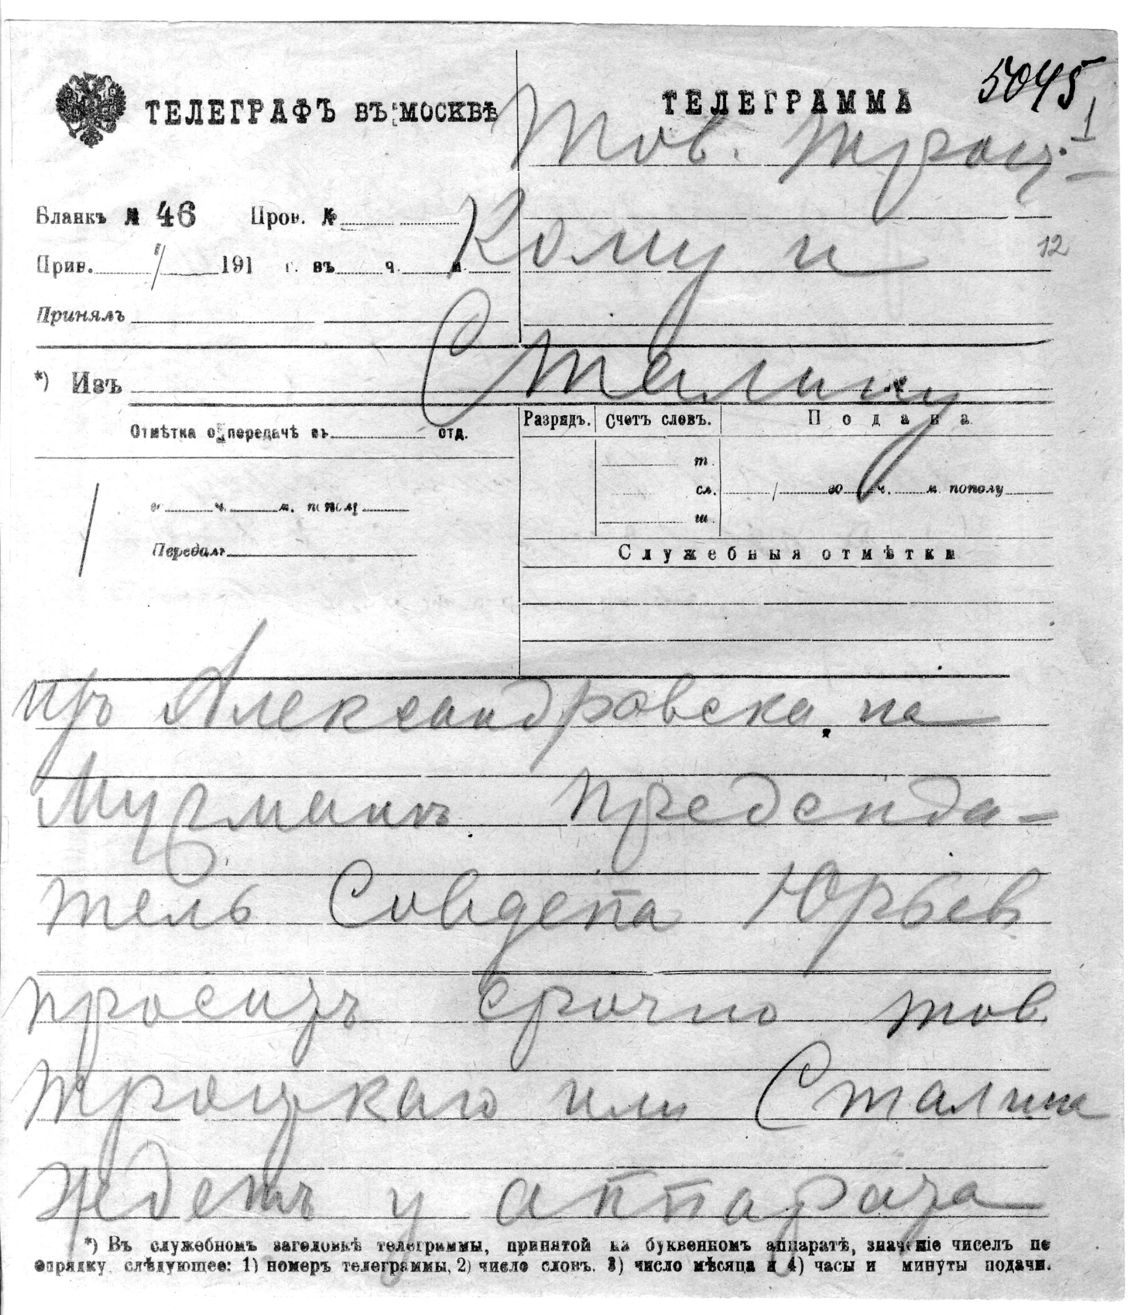 5045
1
ТЕЛЕГРАФЪ ВЪ МОСКВѢ
ТЕЛЕГРАММА
Тов. Троц-
Бланкъ № 46 Пров. №
кому и
12
Прин. / 191 г. въ ч. м.
Принялъ
Сталину
*) Изъ
Отмѣтка о передачѣ въ отд.
Разрядъ. Счетъ словъ. Подана
т.
сл. / во ч. м. пополу
ш.
в ч. м. пополу
Передалъ
Служебныя отмѣтки
изъ Александровска на
Мурманѣ председа-
тель Совдепа Юрьев
проситъ срочно тов
Троцкаго или Сталина
ждетъ у аппарата
*) Въ служебномъ заголовкѣ телеграммы, принятой на буквенномъ аппаратѣ, значеніе чиселъ по
порядку слѣдующее: 1) номеръ телеграммы, 2) число словъ. 3) число мѣсяца и 4) часы и минуты подачи.